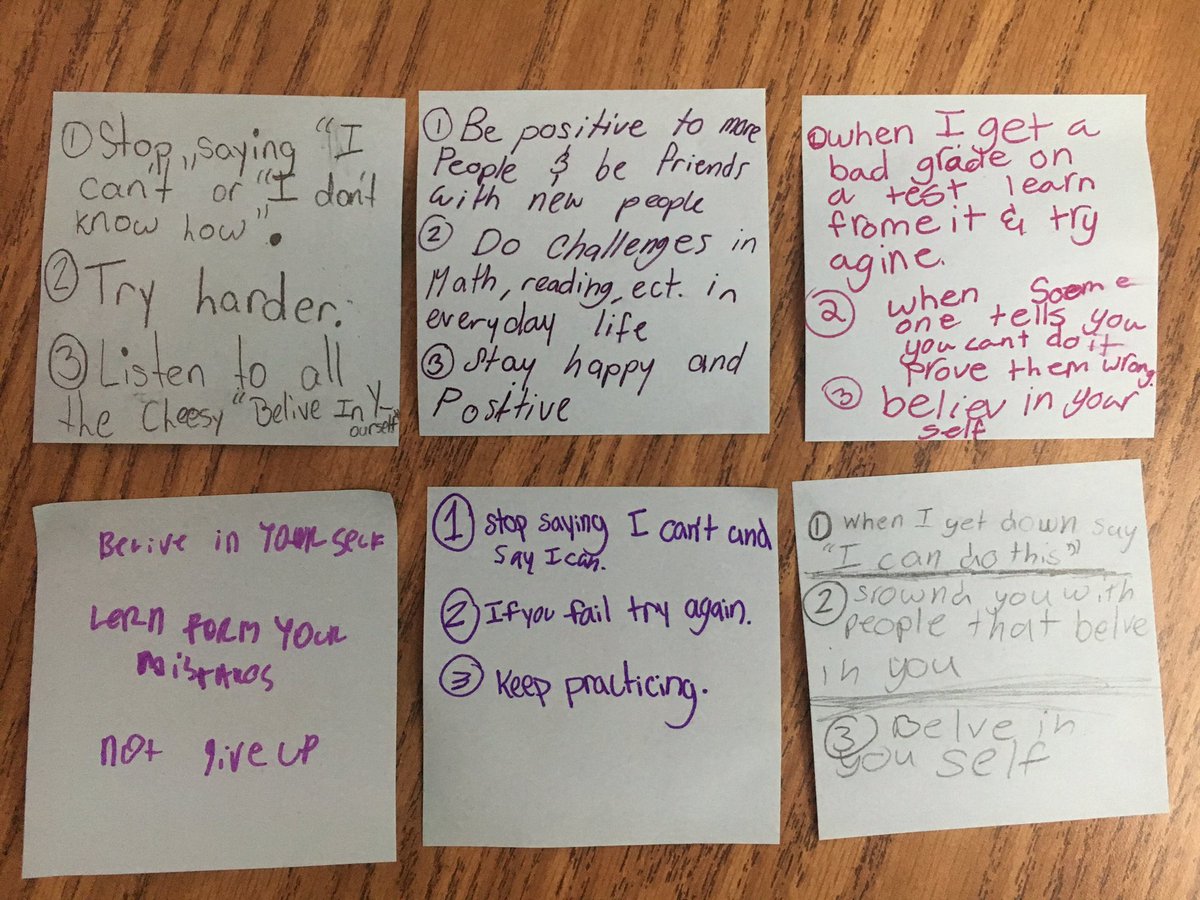 ① Stop saying "I
can't" or "I don't
know how".
② Try harder.
③ Listen to all
the Cheesy "Belive In Y-
ourself
① Be positive to more
People & be friends
with new people
② Do challenges in
Math, reading, ect. in
everyday life
③ Stay happy and
Positive
① when I get a
bad grade on
a test learn
frome it & try
agine.
② when Soeme
one tells you
you cant do it
prove them wrong.
③ believ in your
self
Belive in Your self
Lern form your
mistakes
not give up
① stop saying I can't and
say I can.
② If you fail try again.
③ Keep practicing.
① when I get down say
"I can do this"
② srownd you with
people that belve
in you
③ Belve in
you self